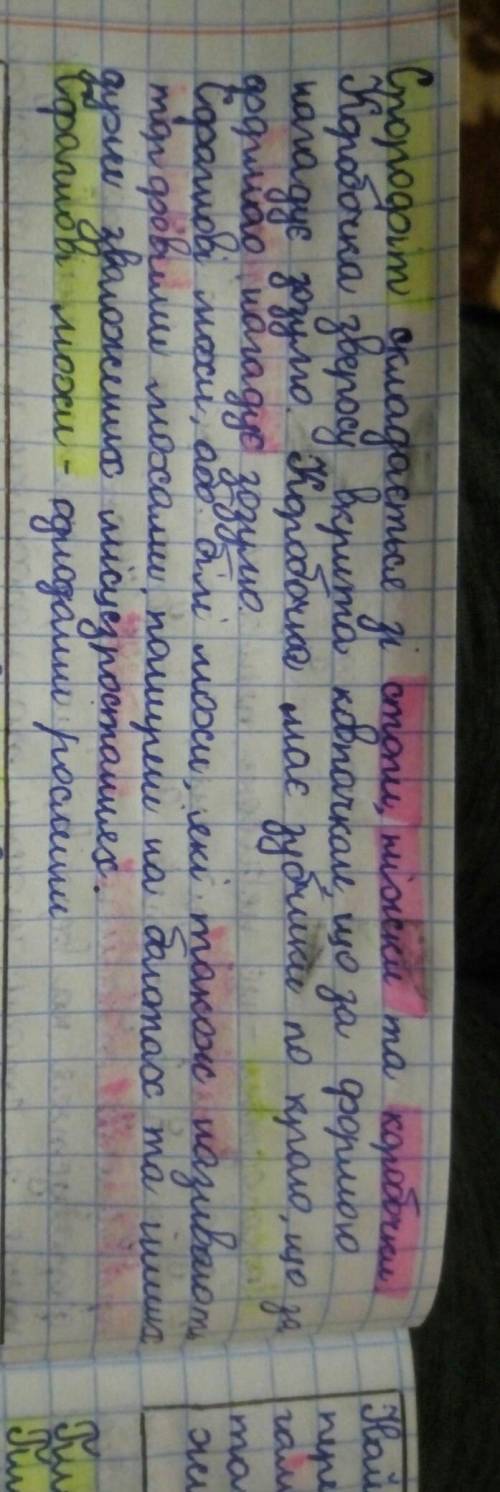 Спорофіт складається зі стопи, ніжки та коробочки
Коробочка зверху вкрита ковпачком, що за формою
нагадує зозулю. Коробочка має зубчики по краю, що за
формою нагадує зозулю.
Сфагнові мохи, або білі мохи, які також називають
торфовими мохами, поширені на болотах та інших
дуже зволожених місцезростаннях.
Сфагнові мохи - однодомні рослини
Най
пере
гам
та
жи